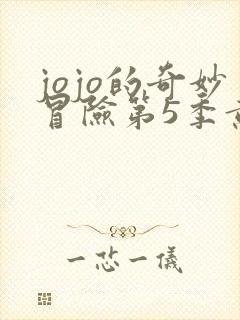 jojo的奇妙
冒險第5季
一恣一儀